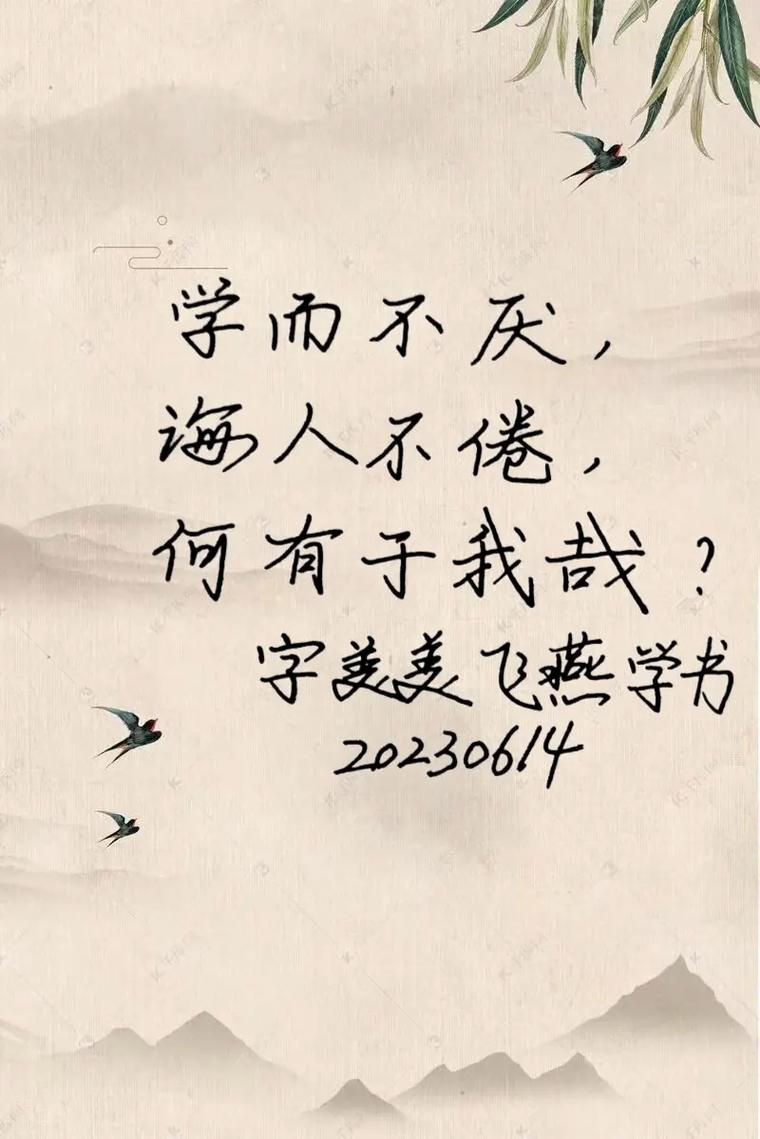 学而不厌，
诲人不倦，
何有于我哉？
字美美飞燕学书
20230614